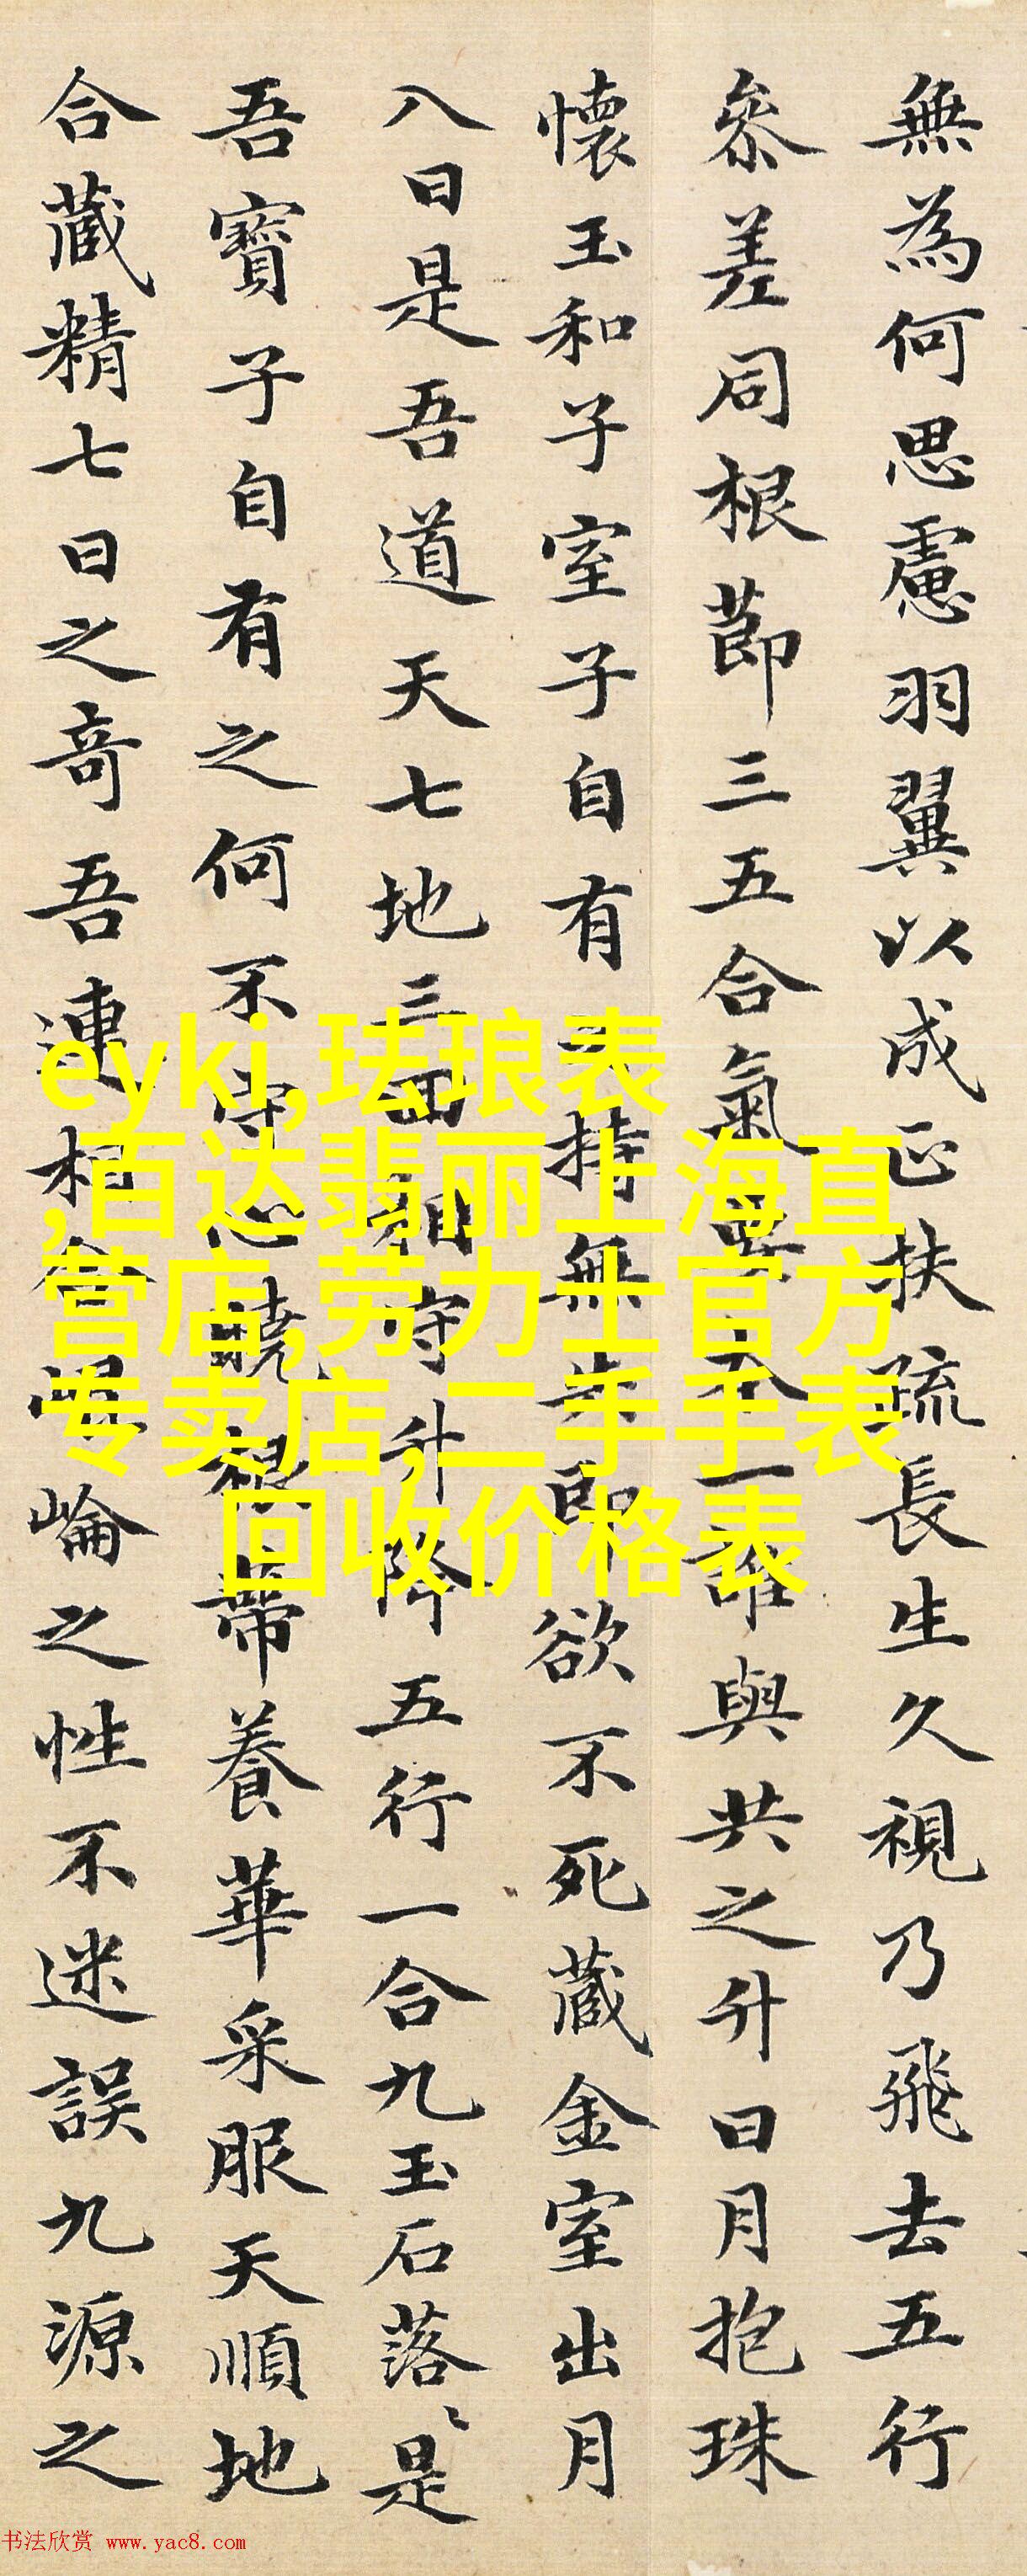 無為何思慮羽翼以成正扶疏長生久視乃飛去五行
參差同根節三五合氣要本一誰與共之升日月抱珠
懷玉和子室子自有持無失即欲不死藏金室出月
入日是吾道天七地三回相守升降五行一合九玉石落〻是
吾寶子自有之何不守心曉根蒂養華采服天順地
合藏精七日之奇吾連相合崙之性不迷誤九源之
eyki,珐琅表
,百达翡丽上海直
营店,劳力士官方
专卖店,二手手表
回收价格表
书法欣赏 www.yac8.com